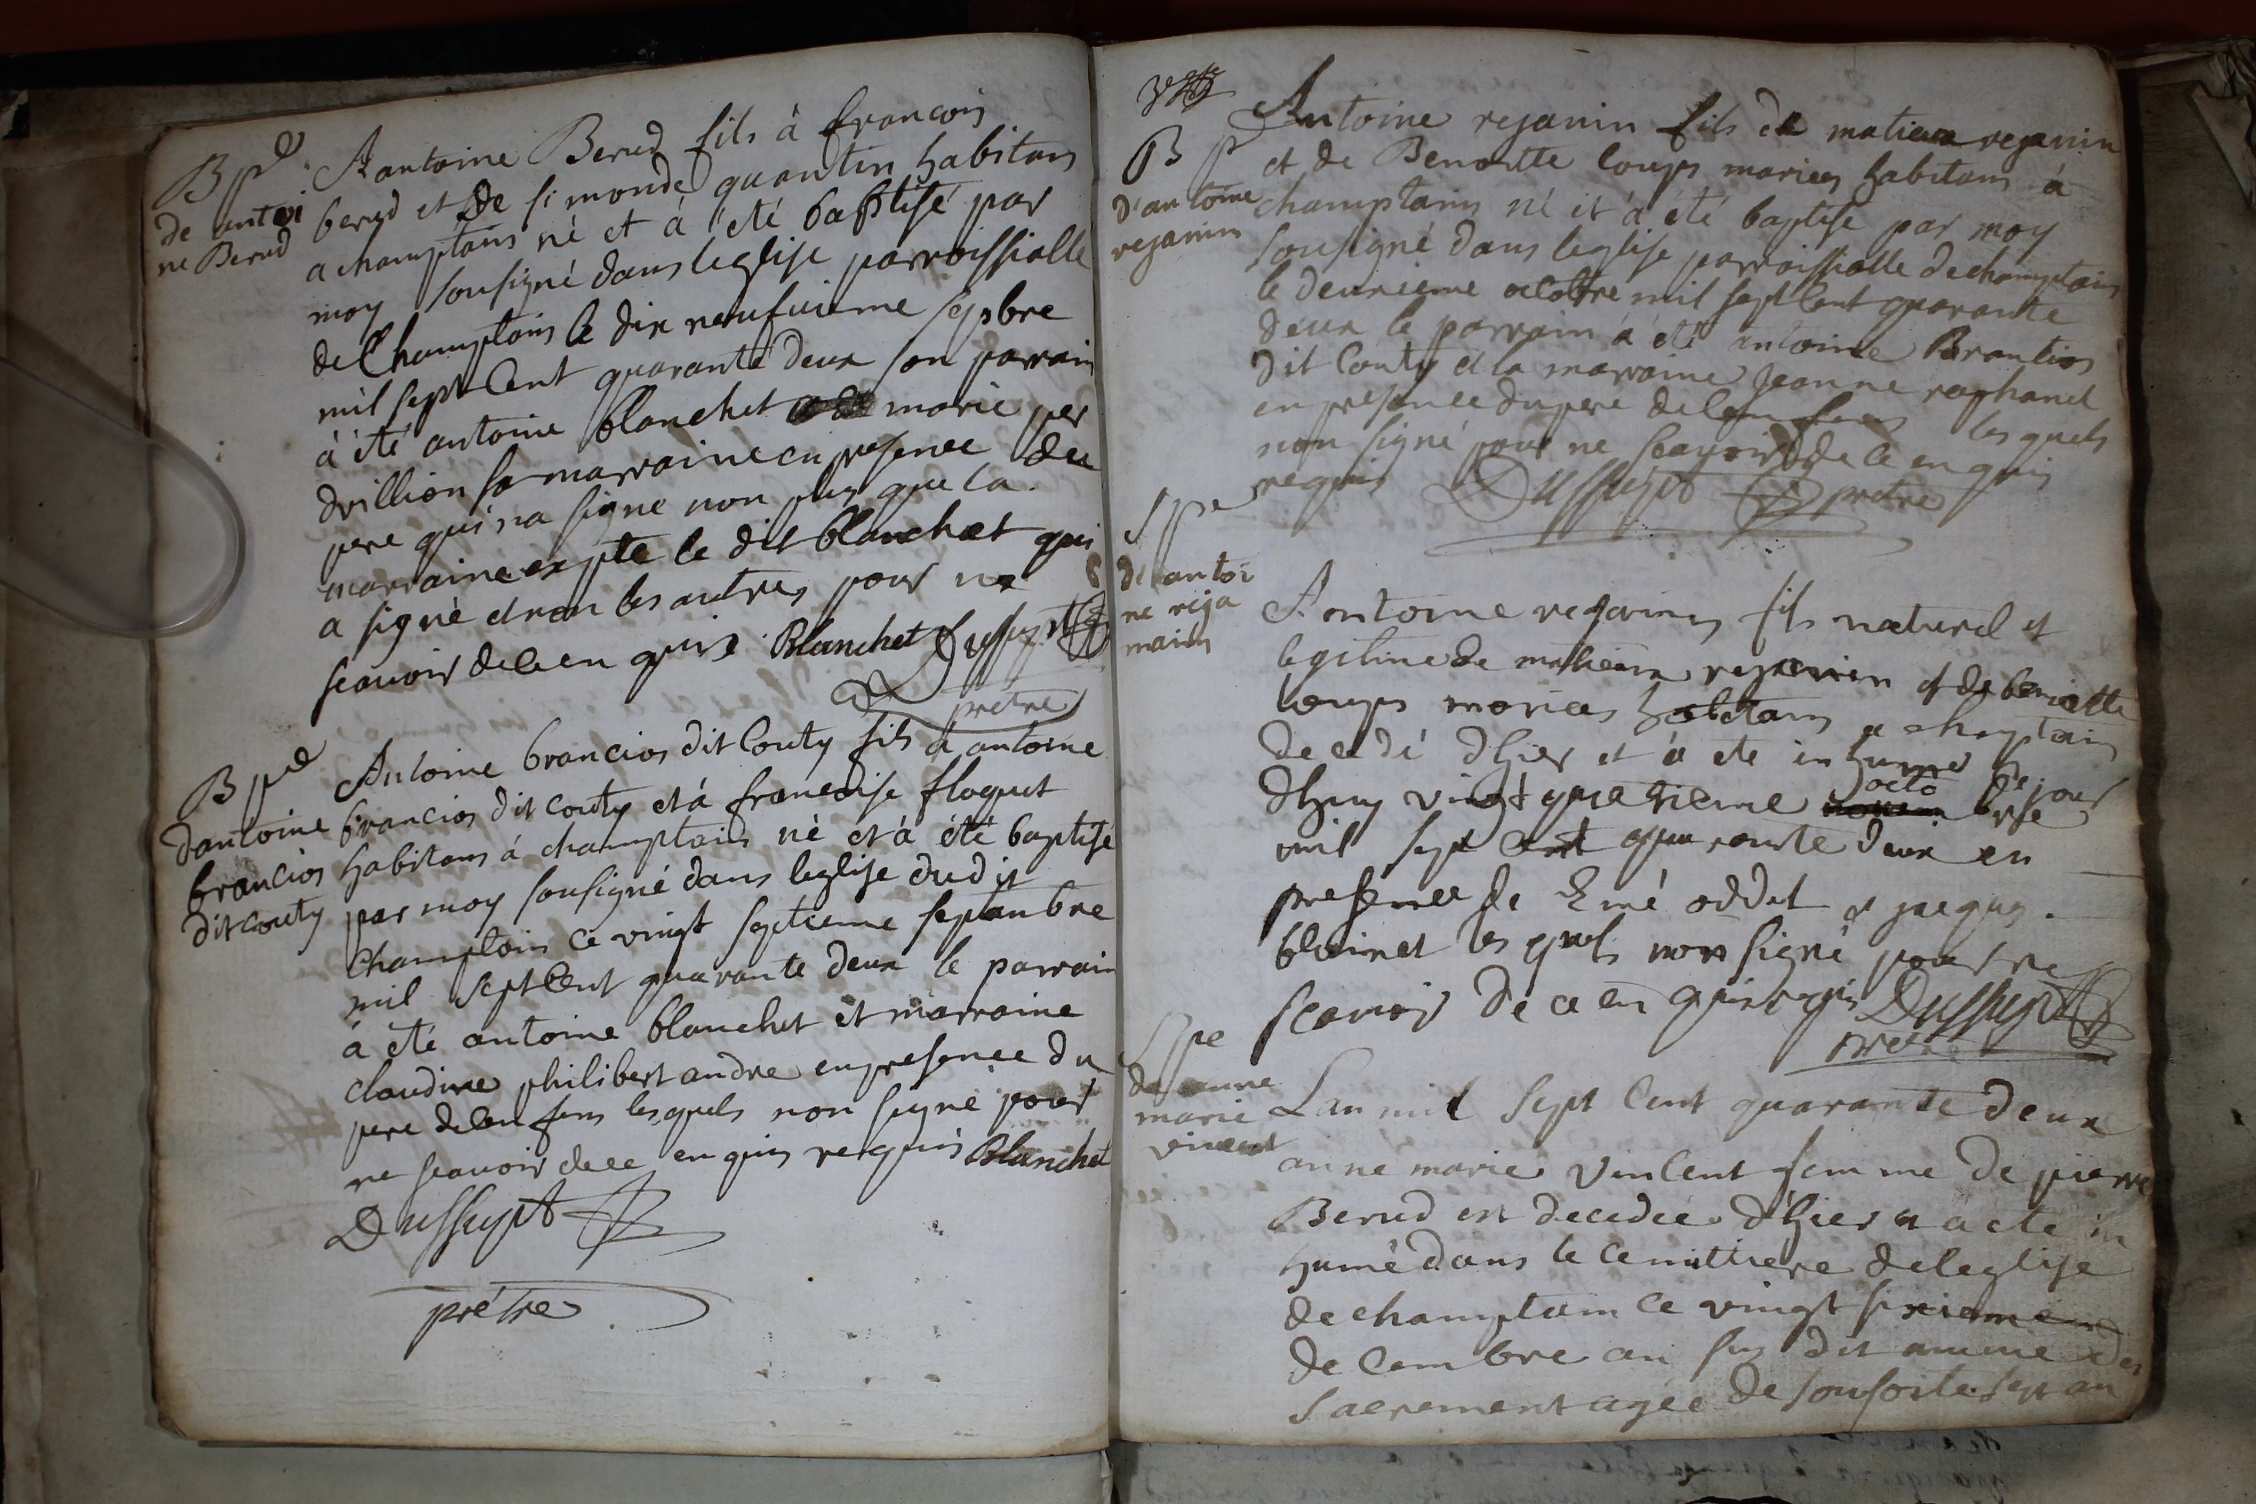 Bp^e
de antoi
ne Berud
Aantoine Berud fils à francois
berud et De simonde quantin habitans
a champtains né et à été baptisé par
moy sousigné dans leglise parroissialle
de Champtains le dix neufvieme sepbre
mil sept Cent quarante deux son parrain
à été antoine blanchet marie per
drillion sa marraine en presence du
pere qui na signe non plus que la
marraine expte le dit blanchet qui
a signé et non les autres pour ne
scavoir de ce en quise Blanchet Dussupt
prétre
Bp^e
dantoine
brancios
dit Couty
Antoine brancios dit Couty fils à antoine
brancios dit couty et à francoise floquet
habitans à champtains né et à été baptisé
par moy sousigné dans leglise dudit
Champtains ce vingt septieme septanbre
mil sept Cent quarante deux le parrain
à été antoine blanchet et marraine
claudine philibert andre en presence du
pere de lenfens lesquels non signé pour
ne scavoir de ce en quis requis Blanchet
Dussupt
prétre
Bp
d'antoine
rejanin
Antoine rejanin fils de matieux rejanin
et de Benoitte loups mariees habitans à
champtains né et à été baptisé par moy
sousigné dans leglise parroissialle de champtains
le deuxieme octobre mil sept Cent quarante
deux le parrain à été antoine Brantios
dit Couty et la marraine Jeanne raphanel
en presence du pere de lenfens les quels
non signé pour ne scavoir de ce en quis
requis Dussupt prétre
Spe
de antoi
ne reja
Antoine rejanin fils naturel et
legitime de matieux rejanin et de benoitte
loups mariees habitans a champtains
decedé dhier et à eté inhumé ce jour
dhuy vingt quatrieme octo bre
mil sept Cent quarante deux en
presence de Emé oddet et jacques
bluinet les quels non signé pour ne
scavoir de ce en quis requis Dussupt
pretre
Spe
de anne
marie
vincent
Lan mil sept Cent quarante deux
anne marie vincent femme de pierre
Berud est decedée dhier et a eté in
humé dans le Cemittiere de leglise
de champtain ce vingt sixieme
decembre an sus dit munie des
sacrement agée de soisoite sept an